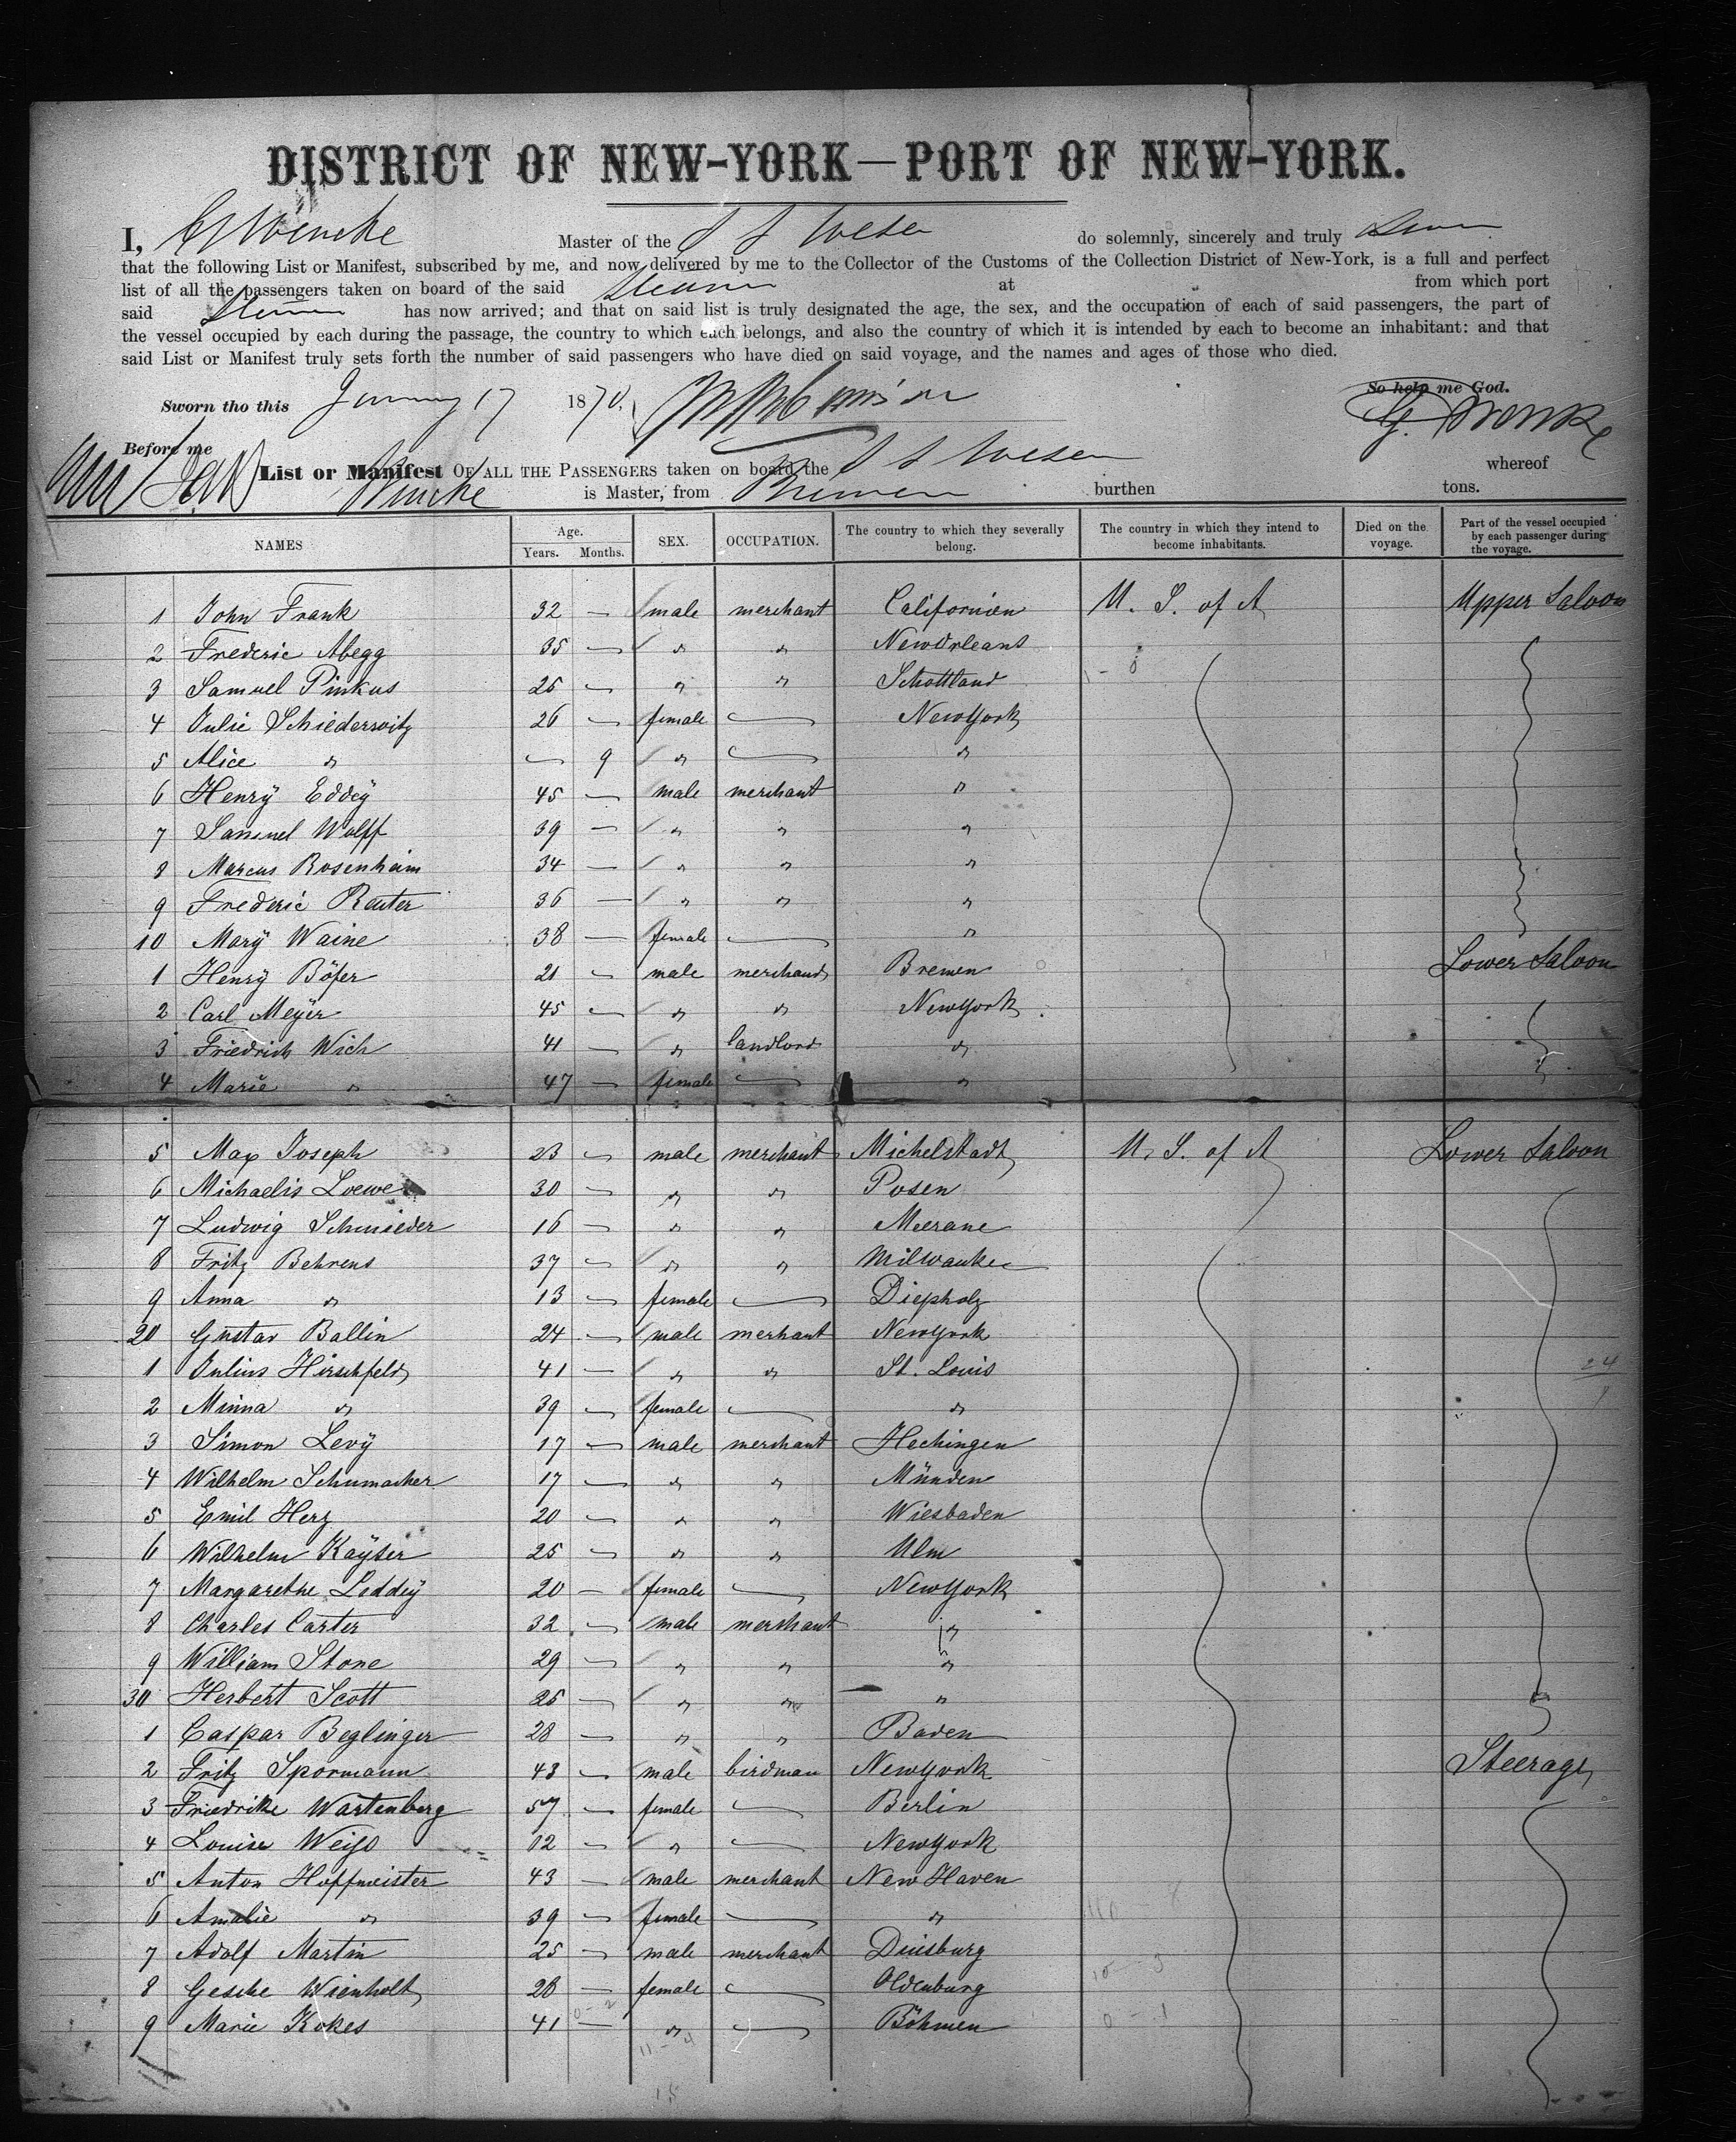 DISTRICT OF NEW-YORK—PORT OF NEW-YORK.
I, G Wencke Master of the S S Weser do solemnly, sincerely and truly Swear
that the following List or Manifest, subscribed by me, and now delivered by me to the Collector of the Customs of the Collection District of New-York, is a full and perfect
list of all the passengers taken on board of the said Steamer at from which port
said Steamer has now arrived; and that on said list is truly designated the age, the sex, and the occupation of each of said passengers, the part of
the vessel occupied by each during the passage, the country to which each belongs, and also the country of which it is intended by each to become an inhabitant: and that
said List or Manifest truly sets forth the number of said passengers who have died on said voyage, and the names and ages of those who died.
So help me God.
Sworn tho this January 17 1870.
G. Wencke
Before me
List or Manifest OF ALL THE PASSENGERS taken on board the S S Weser whereof
Wencke is Master, from Bremen burthen tons.
NAMES Age. Years. Months. SEX. OCCUPATION. The country to which they severally belong. The country in which they intend to become inhabitants. Died on the voyage. Part of the vessel occupied by each passenger during the voyage.
1 John Frank 32 — male merchant Californien U. S. of A Upper Saloon
2 Frederic Abegg 35 — " " NewOrleans
3 Samuel Pinkus 25 — " " Schottland
4 Julie Schiederwitz 26 — female — NewYork
5 Alice " — 9 " — "
6 Henrÿ Eddeÿ 45 — male merchant "
7 Samuel Wolff 39 — " " "
8 Marcus Rosenheim 34 — " " "
9 Frederic Reuter 36 — " " "
10 Marÿ Waine 38 — female — "
1 Henrÿ Böfer 21 — male merchand Bremen Lower Saloon
2 Carl Meÿer 45 — " " NewYork
3 Friedrich Wich 41 — " landlord "
4 Marie " 47 — female — "
5 Max Joseph 23 — male merchant Michelstadt U. S. of A Lower Saloon
6 Michaelis Loewe 30 — " " Posen
7 Ludwig Schmieder 16 — " " Meerane
8 Fritz Behrens 37 — " " Milwaukee
9 Anna " 13 — female — Diepholz
20 Gustav Ballin 24 — male merhant NewYork
1 Julius Hirschfeld 41 — " " St. Louis
2 Minna " 39 — female — "
3 Simon Levÿ 17 — male merchant Hechingen
4 Wilhelm Schumacher 17 — " " Münden
5 Emil Herz 20 — " " Wiesbaden
6 Wilhelm Kaÿser 25 — " " Ulm
7 Margarethe Leddeÿ 20 — female — NewYork
8 Charles Carter 32 — male merchant "
9 William Stone 29 — " " "
30 Herbert Scott 25 — " " "
1 Caspar Beglinger 28 — " " Baden
2 Fritz Spormann 43 — male birdman NewYork Steerage
3 Friedrike Wartenberg 57 — female — Berlin
4 Louise Weiss 12 — " — NewYork
5 Anton Hoffmeister 43 — male merchant New Haven
6 Amalie " 39 — female — "
7 Adolf Martin 25 — male merchant Duisburg
8 Gesche Wienholt 28 — female — Oldenburg
9 Marie Kokes 41 — " — Böhmen